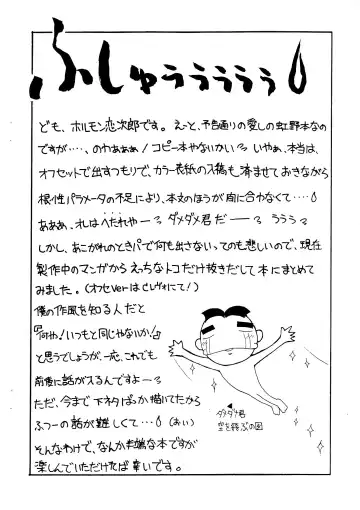 ふしゅぅぅぅぅぅ
ども、ホルモン恋次郎です。えーと、予告通りの愛しの虹野本なの
ですが‥‥、のわぁぁぁ!コピー本やないかい〜 いやぁ、本当は、
オフセットで出すつもりで、カラー表紙の入稿も済ませておきながら
根性パラメータの不足により、本文のほうが間に合わなくて‥‥
あああ、オレはへたれやー〜 ダメダメ君だー〜 ううう〜
しかし、あこがれのときパで何も出さないってのも悲しいので、現在
製作中のマンガからえっちなトコだけ抜きだして本にまとめて
みました。(オフセVerはCレヴォにて!)
僕の作風を知る人だと
『何や!いつもと同じやないか!』
と思うでしょうが、一応、これでも
前後に話が入るんですよー〜
ただ、今まで下ネタばっか描いてたから
ふつーの話が難しくて‥‥(おい)
そんなわけで、なんか半端な本ですが
楽しんでいただければ幸いです。
ダメダメ君
空を飛ぶの図